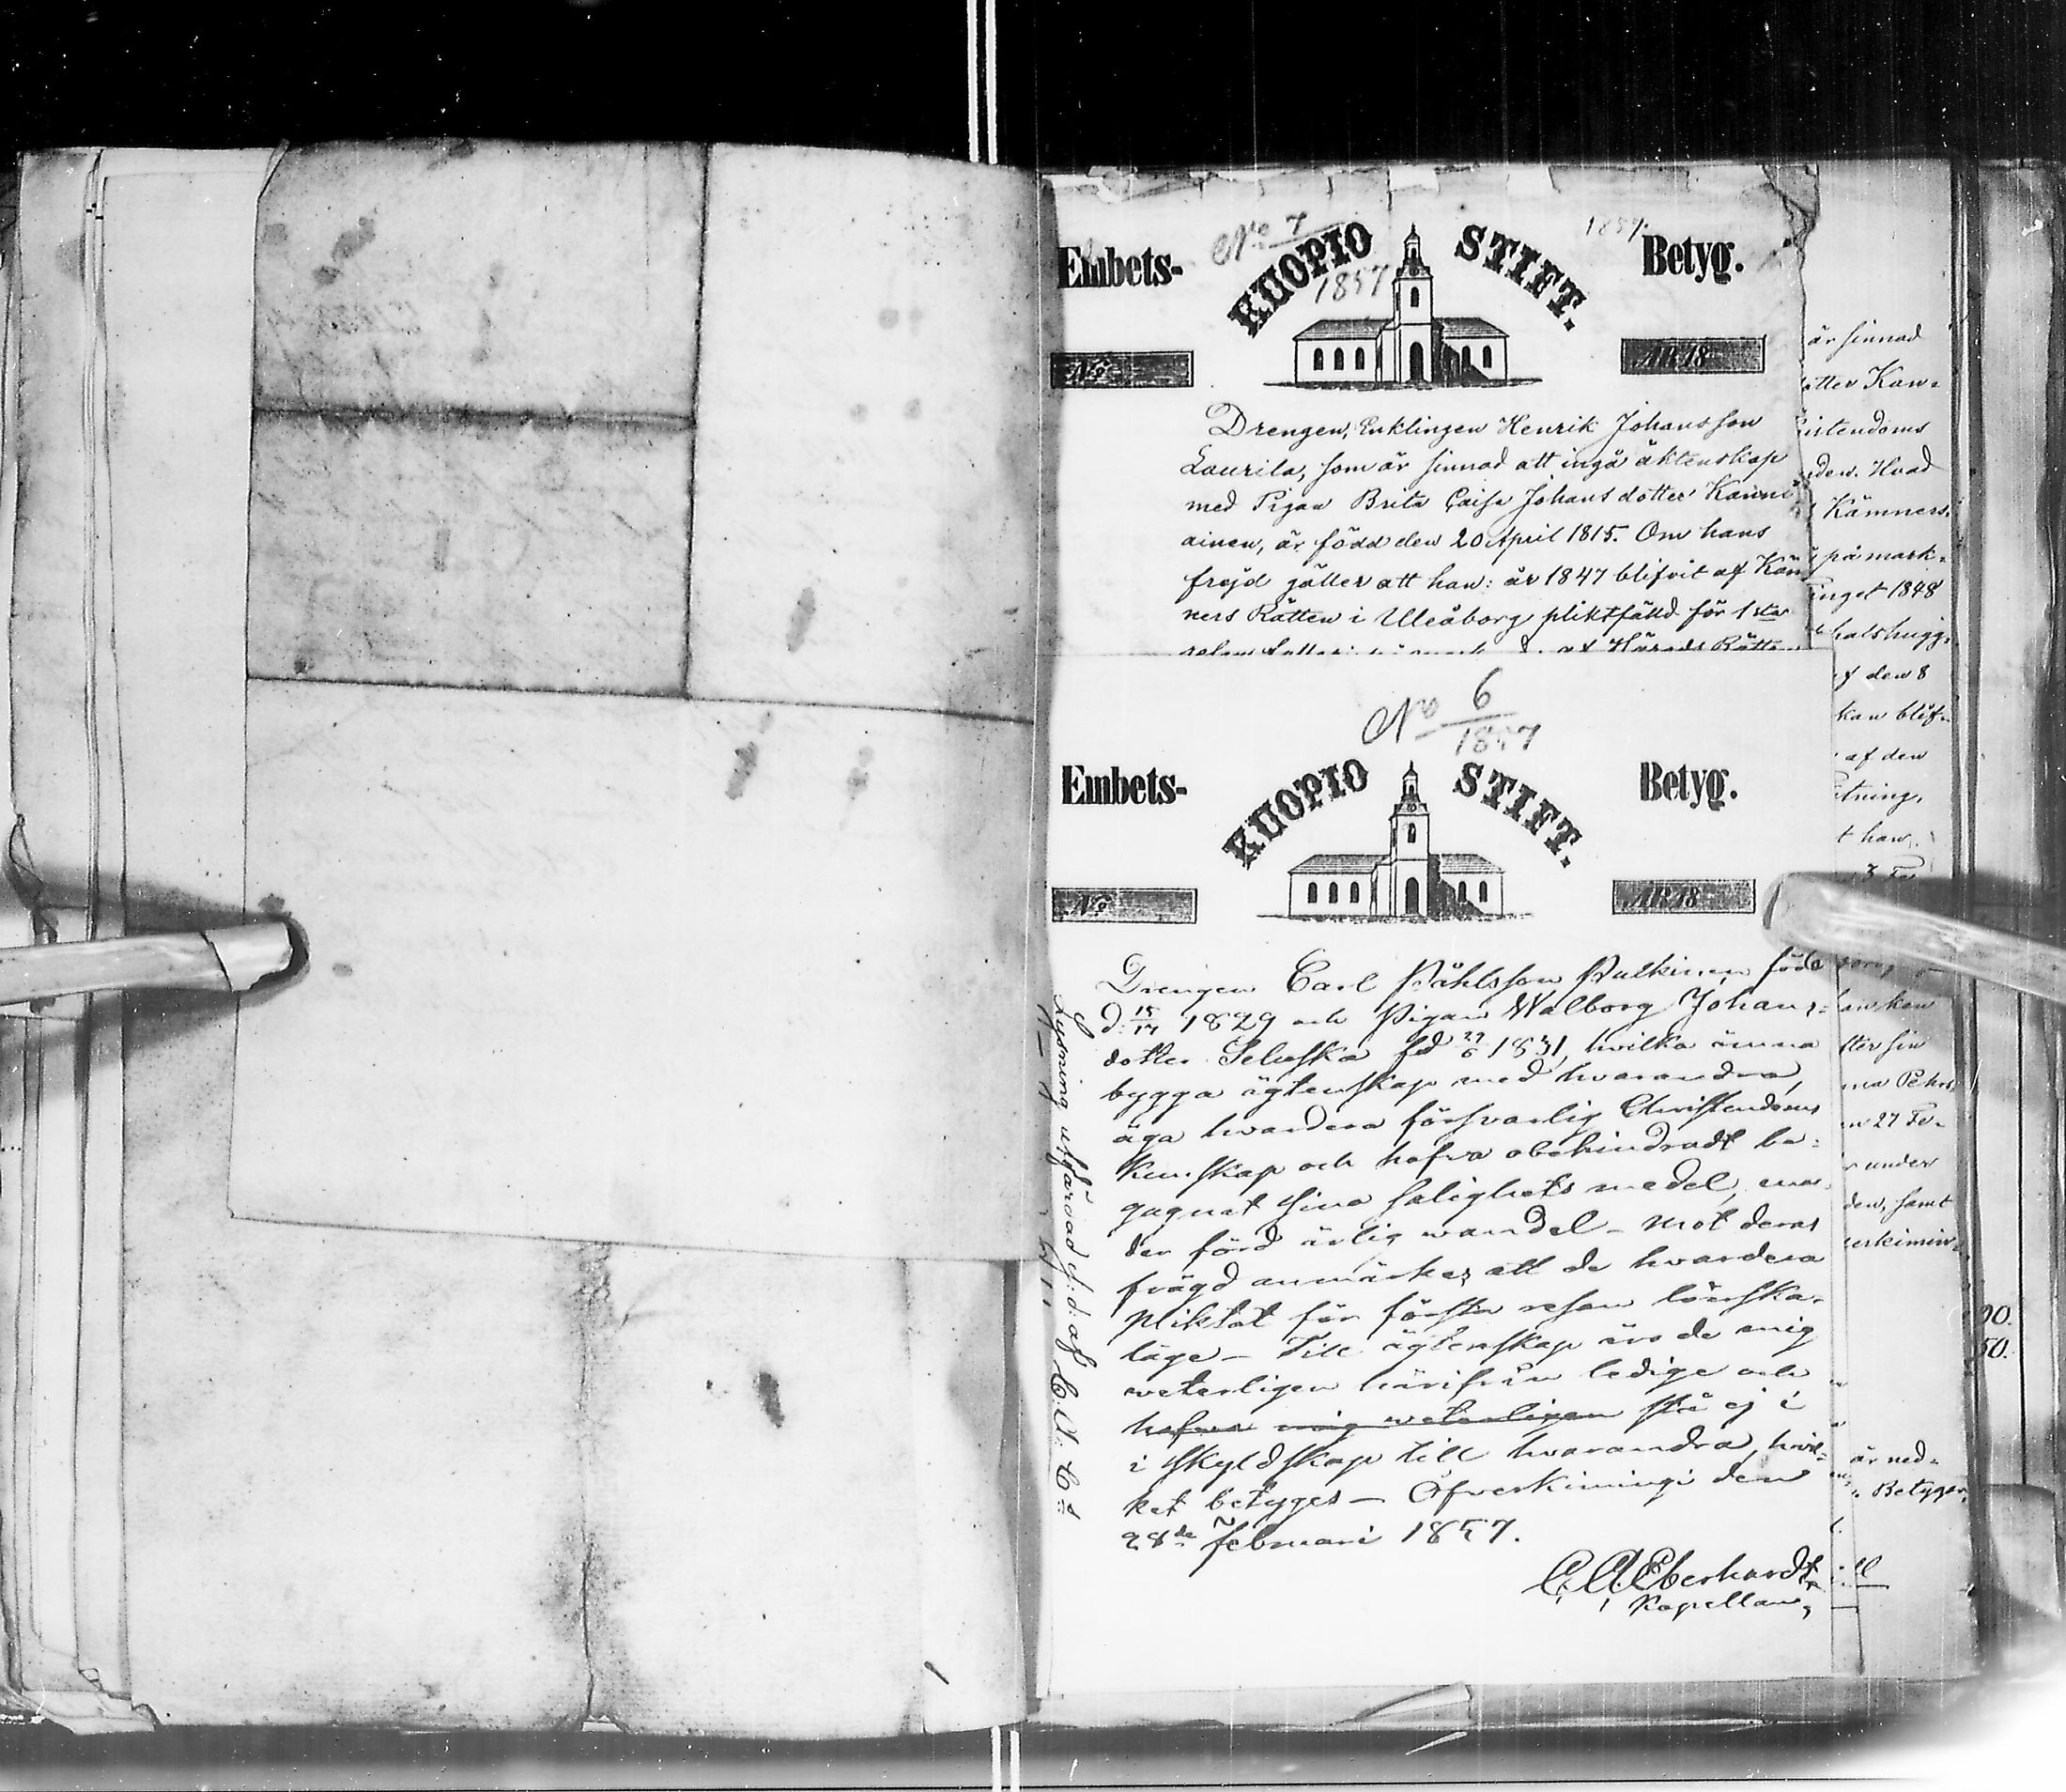 No 7
1857
1857.
Embets-
KUOPIO STIFT.
Betyg.
No
ÅR 18
Drengen, Enklingen Henrik Johansson
Laurila, som är sinnad att ingå äktenskap
med Pigan Brita Caisa Johansdotter
ainen, är född den 20 April 1815. Om hans
frejd gäller att han: år 1847 blifvit af Käm
ners Rätten i Uleåborg pliktfälld för 1sta
af Härads Rätten
No 6
1857
Embets-
KUOPIO STIFT.
Betyg.
No
ÅR 18
Drengen Carl Påhlsson Pulkinen född
d: 15/17 1829 och Pigan Walborg Johans-
dotter fd 29/6 1831, hvilka ämna
bygga ägtenskap med hvarandra,
äga hvardera försvarlig Christendoms
kunskap och hafva obehindradt be-
gagnat sina salighets medel, un-
der förd ärlig wandel - mot deras
frägd anmärkes att de hvardera
pliktat för första resan lönska-
läge - Till ägtenskap äro de mig
veterligen härifrån ledige och
hafva mig veterligen stå ej i
i skyldskap till hvarandra, hvil-
ket betyges - Öfverkiimingi den
28de Februari 1857.
C. A. Eberhardt
Kapellan,
Lysning utfärdad s: d: af C. A. Et
är sinnad
otter Kan-
istendoms
den. Hvad
Kämners
på mark-
inget 1848
halshugg-
af den 8
kan blif-
af den
tning,
t han
tter sin
na Pehrs
n 27 Fe-
under
den, samt
erkimin
00.
50.
är ned-
Betyger,